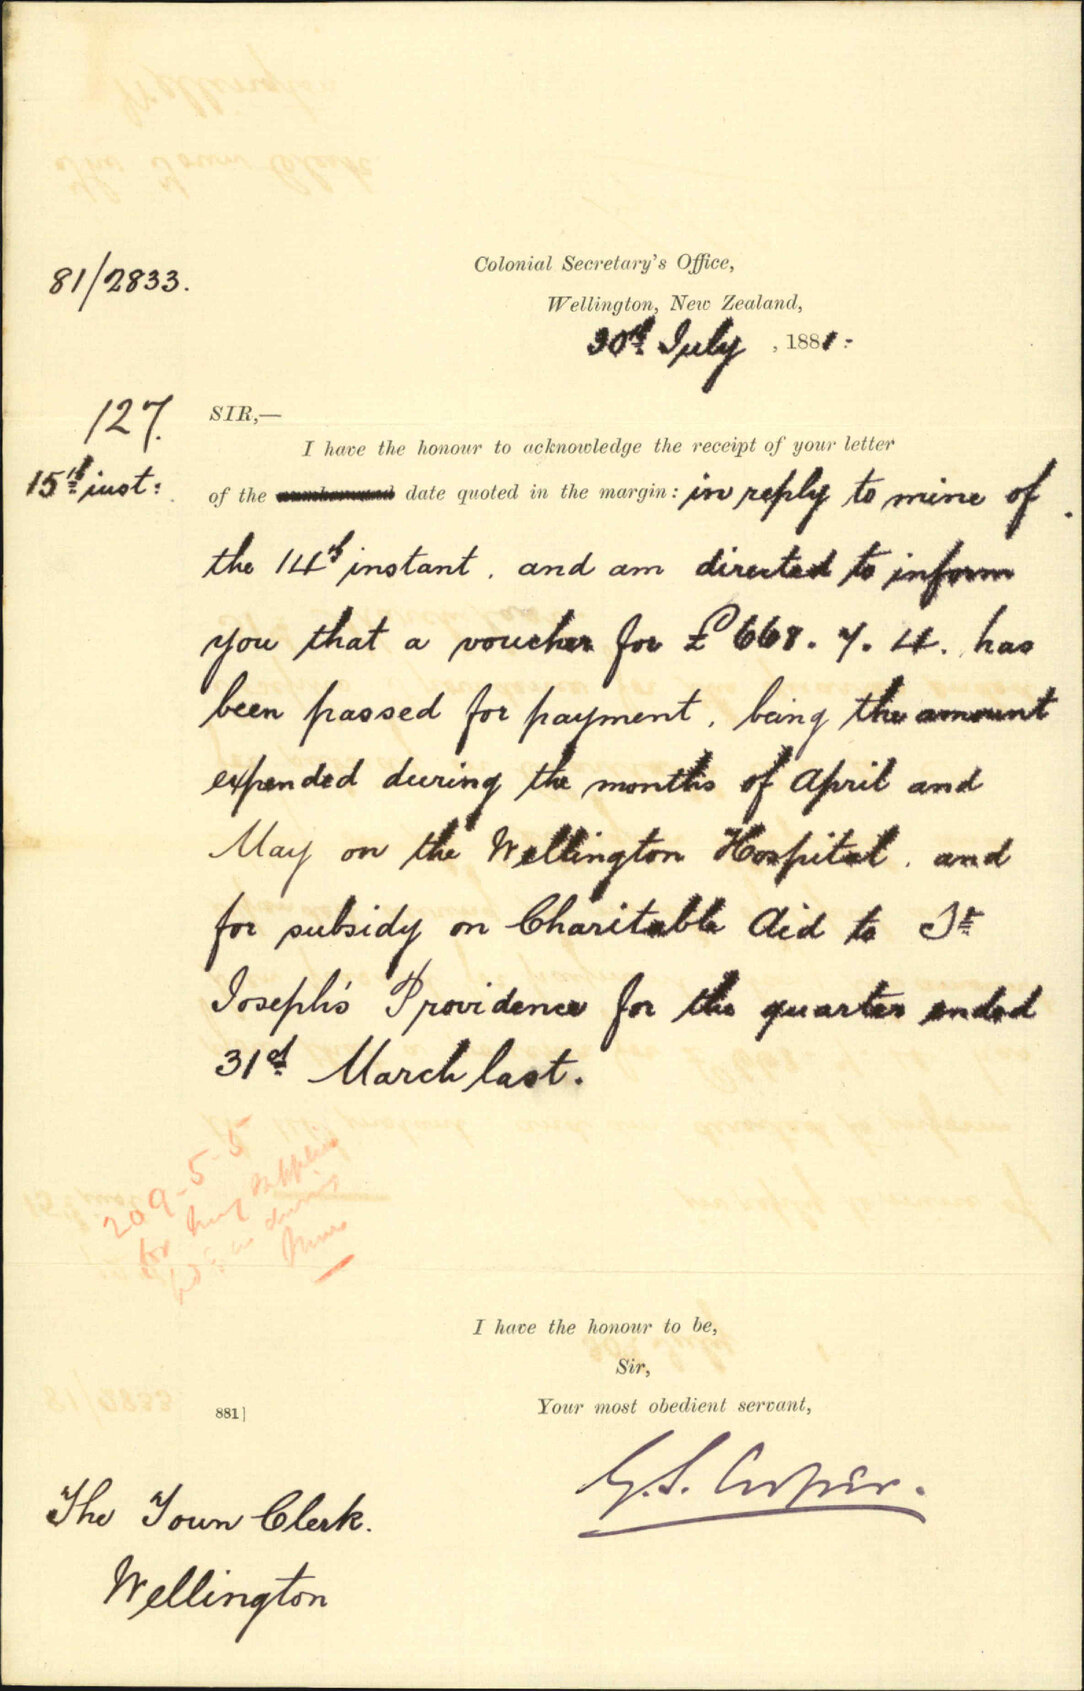 81/2833.
Colonial Secretary's Office,
Wellington, New Zealand,
30th July , 1881.
127.
SIR,—
I have the honour to acknowledge the receipt of your letter
15th inst:
of the number and date quoted in the margin: in reply to mine of
the 14th instant, and am directed to inform
you that a voucher for £668. 7. 4. has
been passed for payment, being the amount
expended during the months of April and
May on the Wellington Hospital, and
for subsidy on Charitable Aid to St
Joseph's Providence for the quarter ended
31st March last.
209-5-5
for
during
June
I have the honour to be,
Sir,
Your most obedient servant,
881]
G. S. Cooper.
The Town Clerk.
Wellington